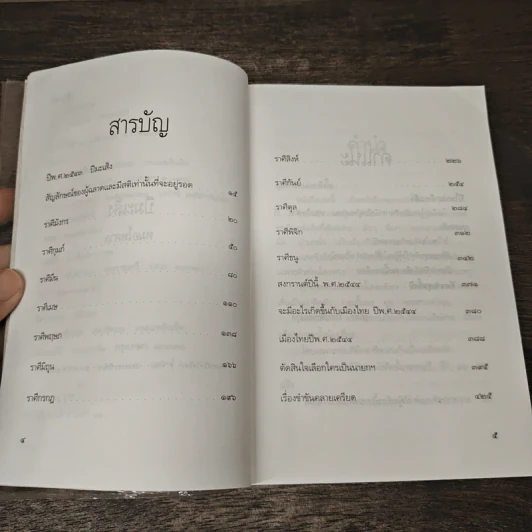 สารบัญ
ปีพ.ศ.๒๕๔๔ ปีมะเส็ง
สัญลักษณ์ของผู้ฉลาดและมีสติเท่านั้นที่จะอยู่รอด ๑๕
ราศีมังกร ๒๐
ราศีกุมภ์ ๕๐
ราศีมีน ๘๐
ราศีเมษ ๑๑๐
ราศีพฤษภ ๑๓๘
ราศีมิถุน ๑๖๖
ราศีกรกฎ ๑๙๖
๔
ราศีสิงห์ ๒๒๖
ราศีกันย์ ๒๕๔
ราศีตุล ๒๘๔
ราศีพิจิก ๓๑๒
ราศีธนู ๓๔๒
สงกรานต์ปีนี้ พ.ศ.๒๕๔๔ ๓๗๑
จะมีอะไรเกิดขึ้นกับเมืองไทย ปีพ.ศ.๒๕๔๔ ๓๘๐
เมืองไทยปีพ.ศ.๒๕๔๔ ๓๘๘
ตัดสินใจเลือกใครเป็นนายกฯ ๓๙๕
เรื่องขำขันคลายเครียด ๔๒๕
๕